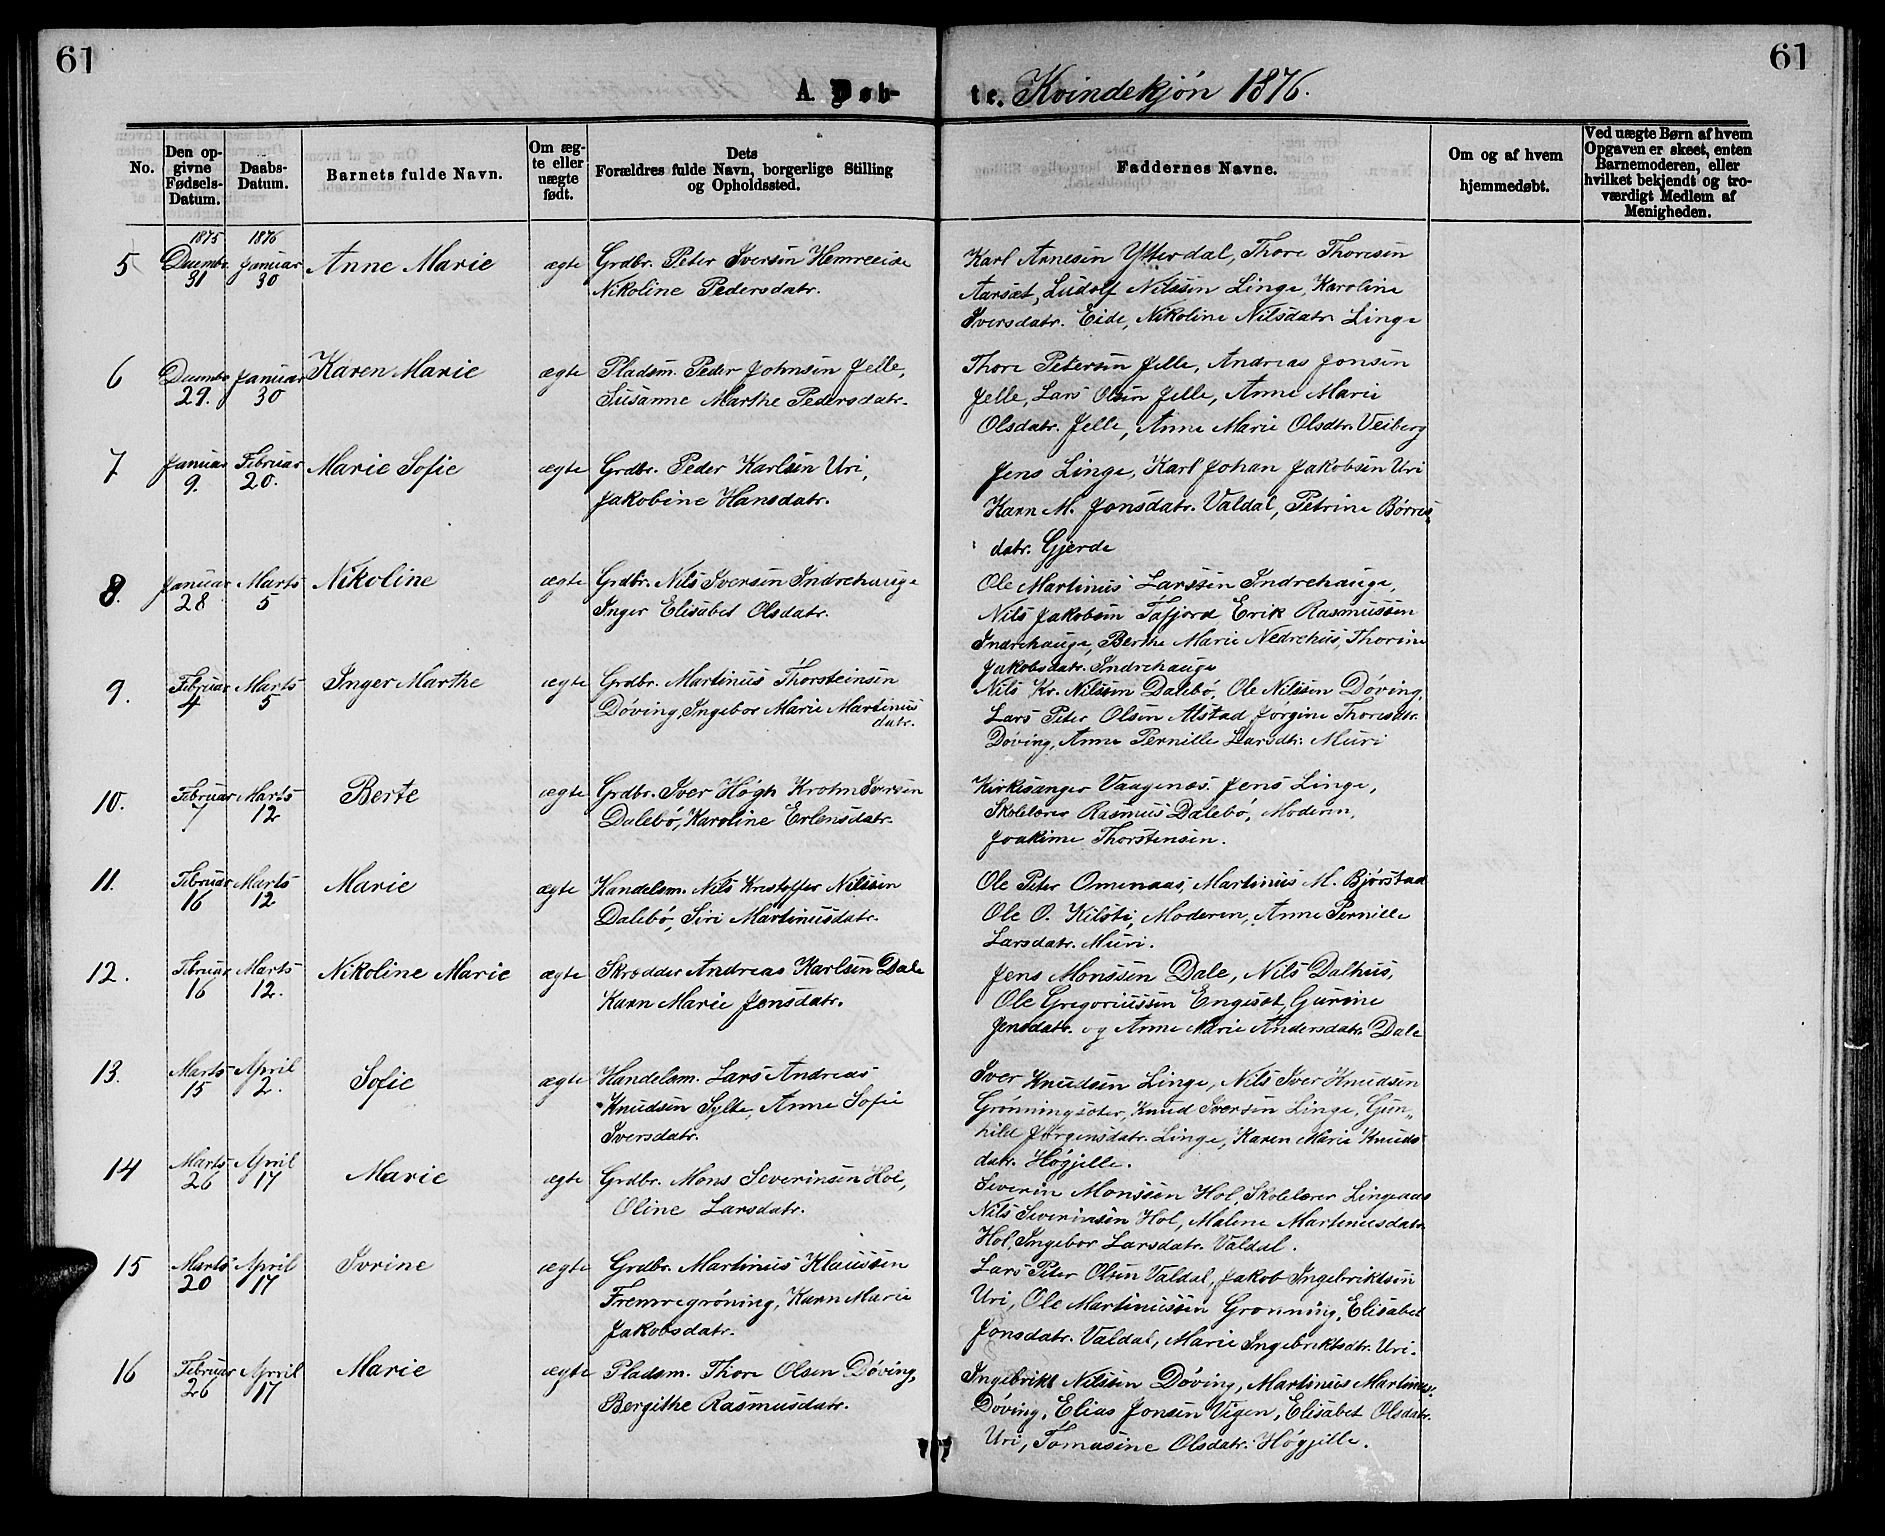 61
61
A Døb-
te. Kvindekjön 1876.
No.
Den op-
givne
Fødsels-
Datum.
Daabs-
Datum.
Barnets fulde Navn.
Om æg-
te eller
uægte
født.
Dets
Forældres fulde Navn, borgerlige Stilling
og Opholdssted.
Faddernes Navne.
Om og af hvem
hjemmedøbt.
Ved uægte Børn af hvem
Opgaven er skeet, enten
Barnemoderen, eller
hvilket bekjendt og tro-
værdigt Medlem af
Menigheden.
1875 1876
5 Decembr. 31 Januar 30 Anne Marie ægte Grdbr. Peter Iversen Hemreeide
Nikoline Pedersdatr.
Karl Arnesen Ytterdal, Thore Thoresen
Aarsæt, Ludolf Nilssen Linge, Karoline
Iversdatr. Eide, Nikoline Nilsdatr. Linge
6 Decembr 29. Januar 30 Karen Marie ægte Pladsm. Peder Johnsen Jelle,
Susanne Marthe Pedersdatr.
Thore Petersen Jelle, Andreas Jonsen
Jelle, Lars Olsen Jelle, Anne Marie
Olsdatr. Jelle, Anne Marie Olsdtr. Veiberg
7 Januar 9. Februar 20. Marie Sofie ægte Grdbr. Peder Karlsen Uri,
Jakobine Hansdatr.
Jens Linge, Karl Johan Jakobsen Uri
Karn M. Jonsdatr. Valdal, Petrine Børres
datr. Gjerde
8. Januar 28 Marts 5 Nikoline ægte Grdbr. Nils Iversen Indrehauge
Inger Elisabet Olsdatr.
Ole Martinus Larssen Indrehauge,
Nils Jakobsen Tafjord Erik Rasmussen
Indrehauge, Berthe Marie Nedrehus, Thorine
Jakobsdatr. Indrehauge
9. Februar 4 Marts 5 Inger Marthe ægte Grdbr. Martinus Thorsteinsen
Döving, Ingebor Marie Martinus
datr.
Nils Kr. Nilssen Dalebö, Ole Nilssen Döving,
Lars Peter Olsen Alstad Jørgine Thoresdtr.
Döving, Anne Pernille Larsdtr. Muri
10. Februar 7 Marts 12 Berte ægte Grdbr. Iver Høgh Krohn Iversen
Dalebö, Karoline Erlensdatr.
Kirkesanger Vaagenæs. Jens Linge,
Skolelærer Rasmus Dalebö, Moderen,
Joakime Thorstensen.
11. Februar 16 Marts 12 Marie ægte Handelsm. Nils Krestoffer Nilssen
Dalebö, Siri Martinusdatr.
Ole Peter Omenaas, Martinus M. Bjørstad
Ole O. Kilsti, Moderen, Anne Pernille
Larsdatr. Muri.
12. Februar 16 Marts 12. Nikoline Marie ægte Skrædder Andreas Karlsen Dale
Karn Marie Jensdatr.
Jens Monssen Dale, Nils Dalhus,
Ole Gregoriussen Engeset, Gurine
Jensdatr. og Anne Marie Andersdatr. Dale
13. Marts 15 April 2. Sofie ægte Handelsm. Lars Andreas
Knudsen Sylte, Anne Sofie
Iversdatr.
Iver Knudsen Linge, Nils Iver Knudsen
Grønningsæter, Knud Iversen Linge, Gun„
hild Jørgensdatr. Linge, Karen Marie Knuds
datr. Høgjelle.
14 Marts 26 April 17 Marie ægte Grdbr. Mons Severinsen Hol,
Oline Larsdatr.
Severin Monssen Hol, Skolelærer Lingeaas
Nils Severinsen Hol, Malene Martinusdatr.
Hol, Ingebor Larsdatr. Valdal.
15 Marts 20 April 17 Ivrine ægte Grdbr. Martinus Klaussen
Fremregröning, Karn Marie
Jakobsdatr.
Lars Peter Olsen Valdal, Jakob Ingebriktsen
Uri, Ole Martinussen Gronning, Elisabet
Jonsdatr. Valdal, Marie Ingebriktsdtr. Uri.
16 Februar 26 April 17 Marie ægte Pladsm. Thore Olsen Döving,
Bergithe Rasmusdatr.
Ingebrikt Nilssen Döving, Martinus Martinus.
Döving, Elias Jonsen Vigen, Elisabet Olsdatr.
Uri, Tomasine Olsdatr. Högjelle.